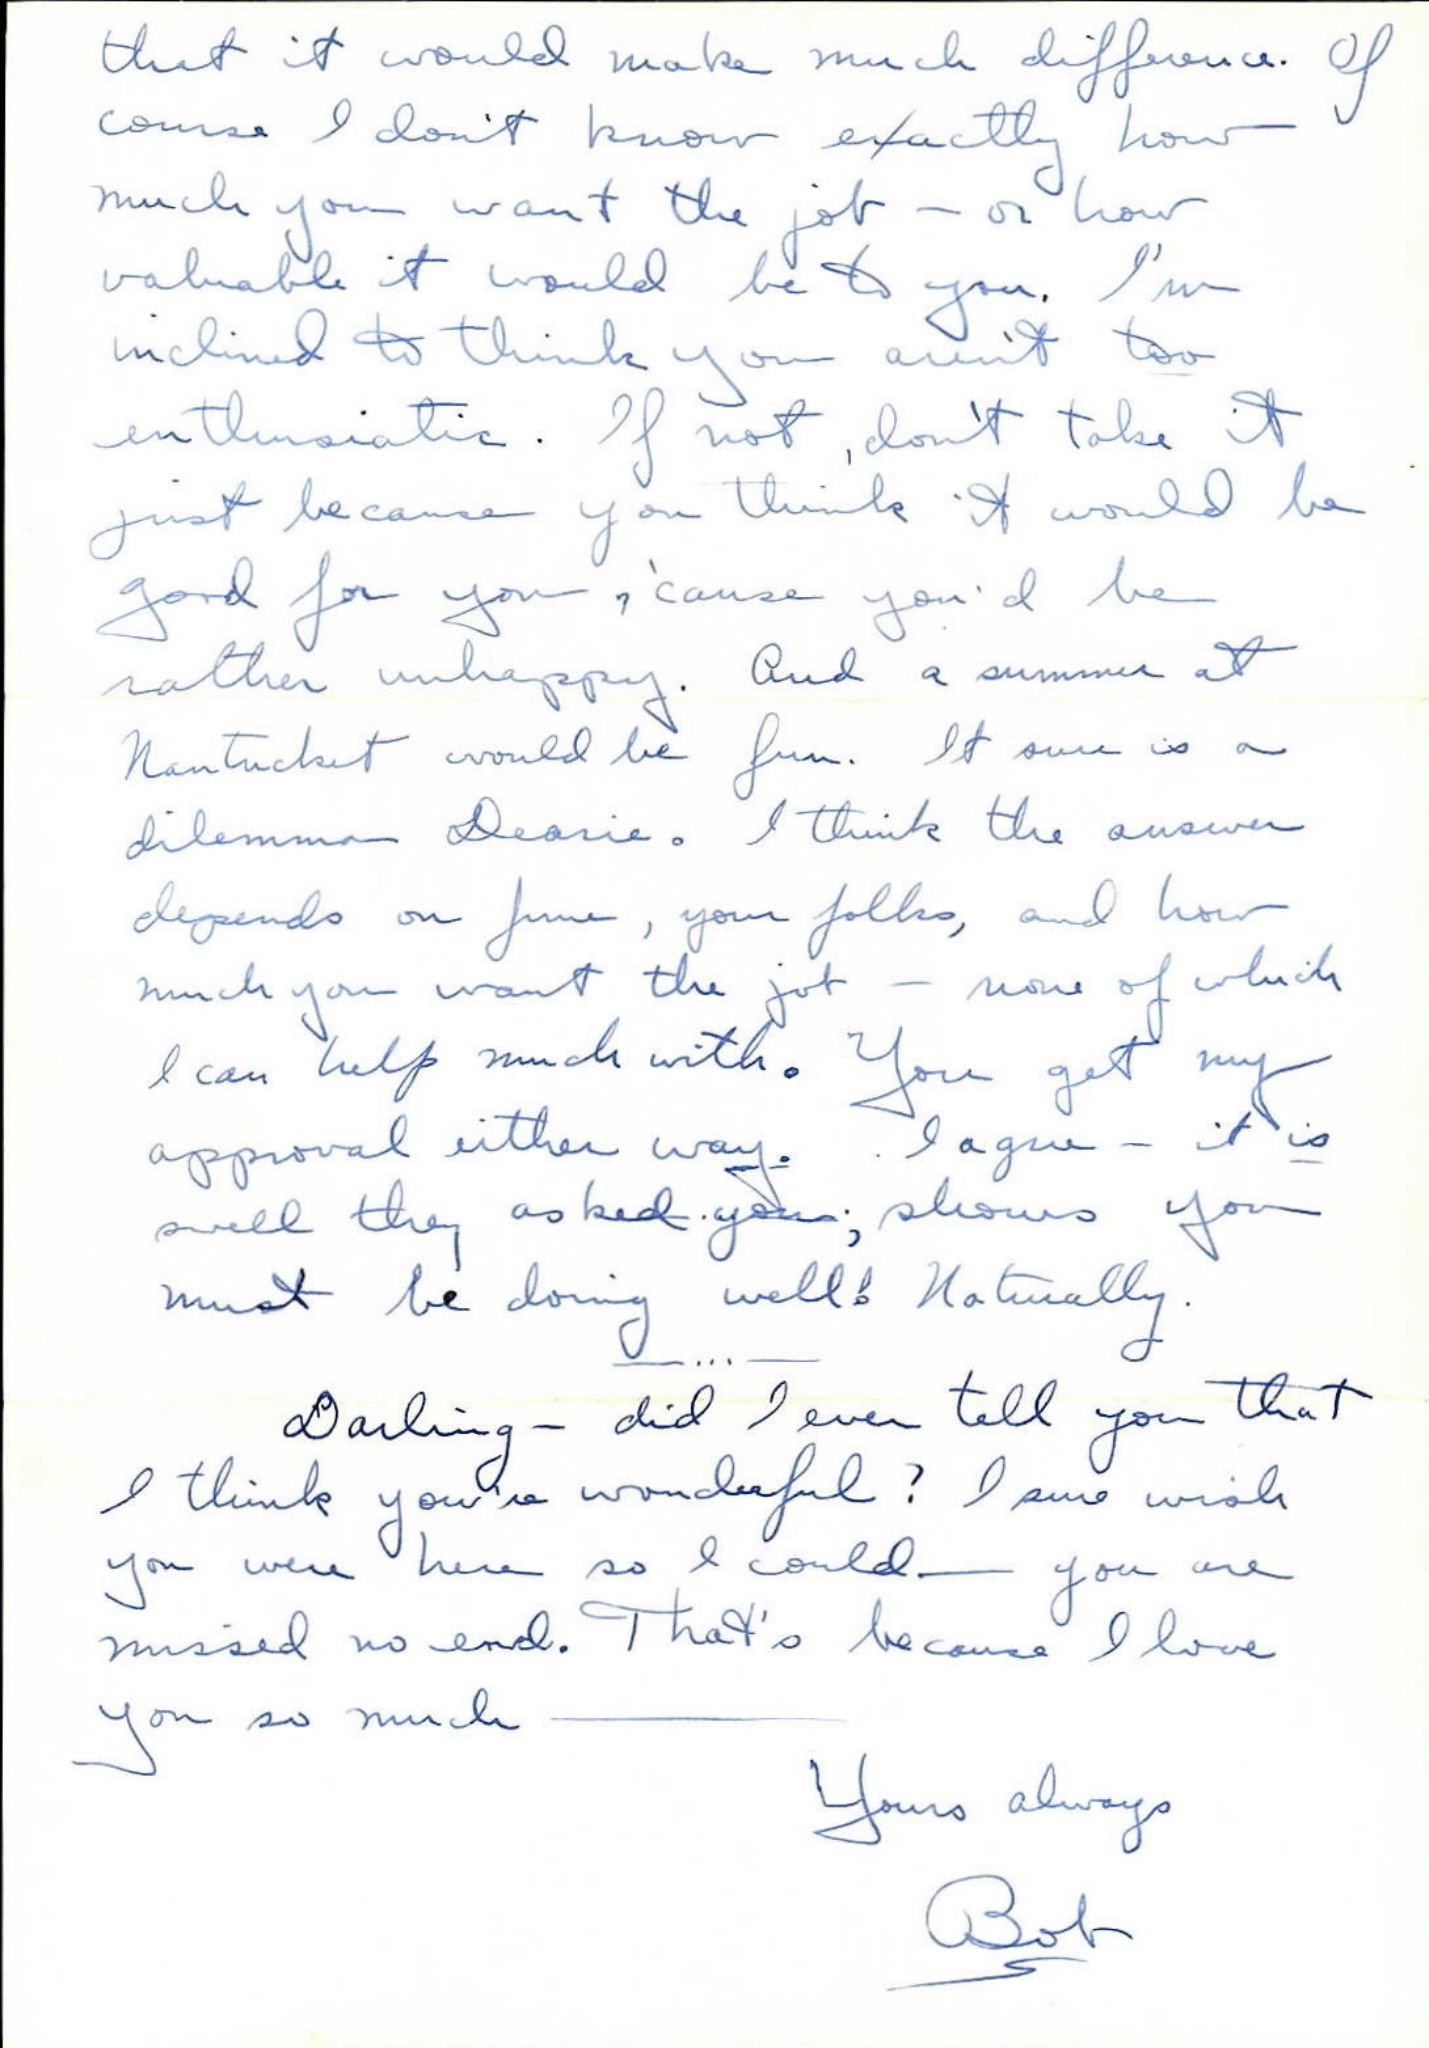 that it would make much difference. Of
course I don't know exactly how
much you want the job — or how
valuable it would be to you. I'm
inclined to think you aren't too
enthusiatic. If not, don't take it
just because you think it would be
good for you, 'cause you'd be
rather unhappy. And a summer at
Nantucket would be fun. It sure is a
dilemma Dearie. I think the answer
depends on June, your folks, and how
much you want the job — none of which
I can help much with. You get my
approval either way. I agree — it is
swell they asked you; shows you
must be doing well! Naturally.
—...—
Darling — did I ever tell you that
I think you're wonderful? I sure wish
you were here so I could — you are
missed no end. That's because I love
you so much —
Yours always
Bob